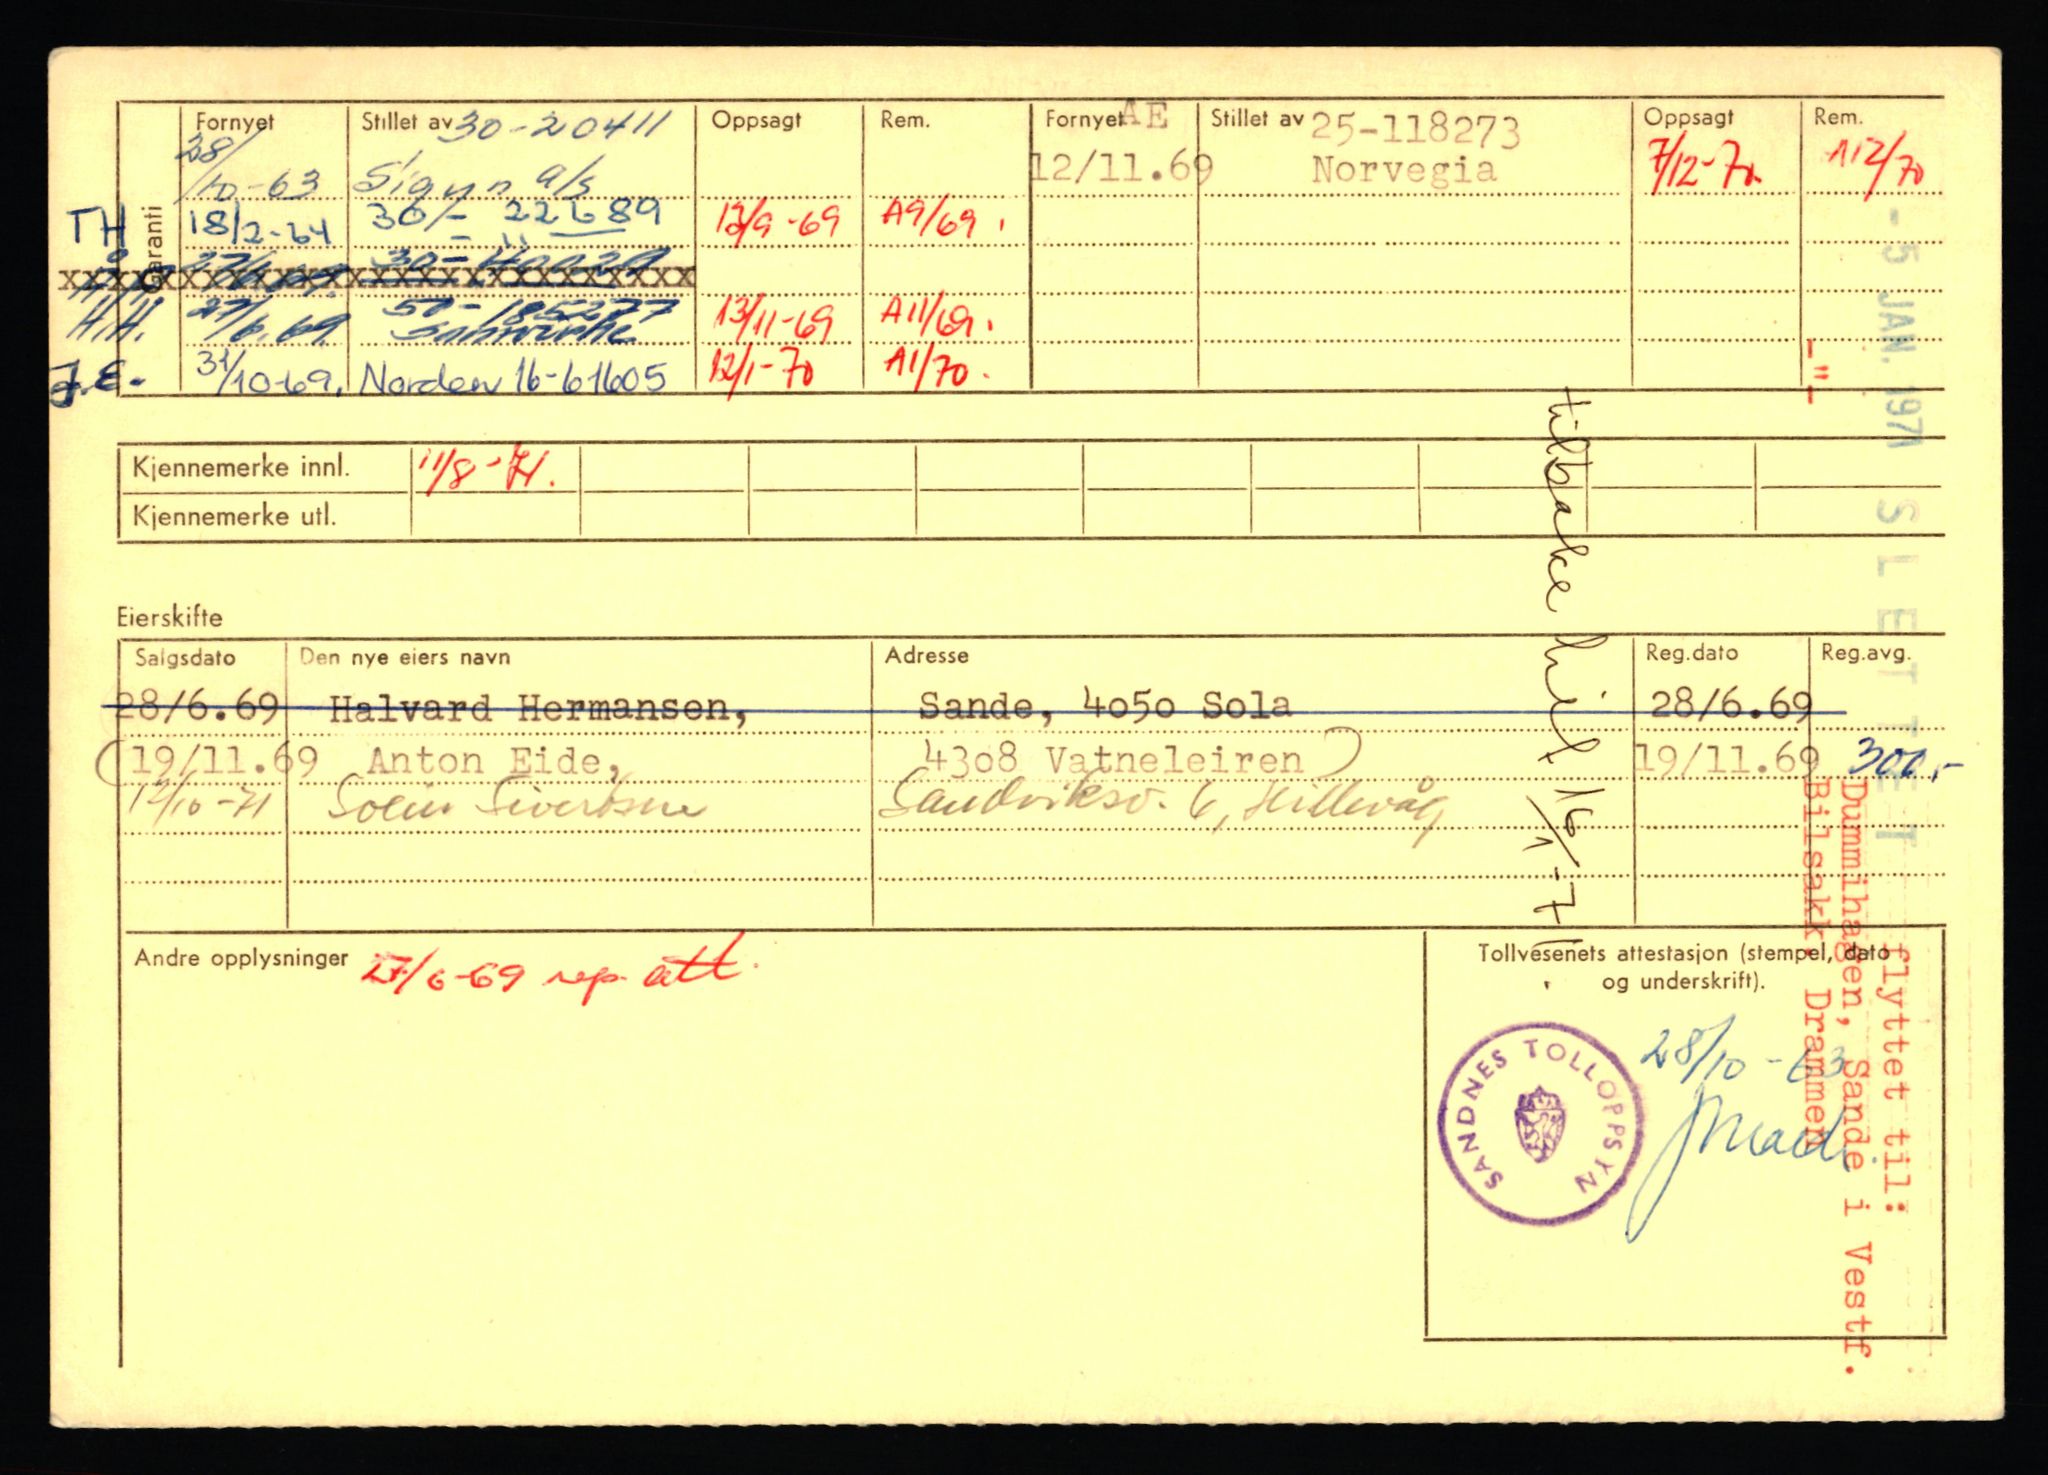 Garanti
Fornyet Stillet av 30-20411 Oppsagt Rem. Fornyet AE Stillet av 25-118273 Oppsagt Rem.
28/10-63 Sigyn a/s 12/11.69 Norvegia 7/12-70. A12/70
TH 18/2-64 30/- 22689 12/9-69 A9/69.
- " -
xxxxxxxxxxxxxxxxxxxxxxxxxxxxxx
H.H. 27/6.69. 50-185277 13/11-69 A11/69.
Samvirke
J.E. 31/10-69. Norden 16-61605 12/1-70 A1/70. -"-
- 5 JAN. 1971 SLETTET
Kjennemerke innl. 11/8-71.
Kjennemerke utl.
tilbake hit 16/1-71
Eierskifte
Salgsdato Den nye eiers navn Adresse Reg.dato Reg.avg.
28/6.69 Halvard Hermansen, Sande, 4050 Sola 28/6.69
(19/11.69 Anton Eide, 4308 Vatneleiren) 19/11.69 300,-
12/10-71 Sandviksv. 6, Hillevåg
Andre opplysninger 27/6-69 rep. att.
Tollvesenets attestasjon (stempel, dato
og underskrift).
SANDNES TOLLOPPSYN
28/10-63
flyttet til:
Dummihagen, Sande i Vestf.
Bilsakk. Drammen